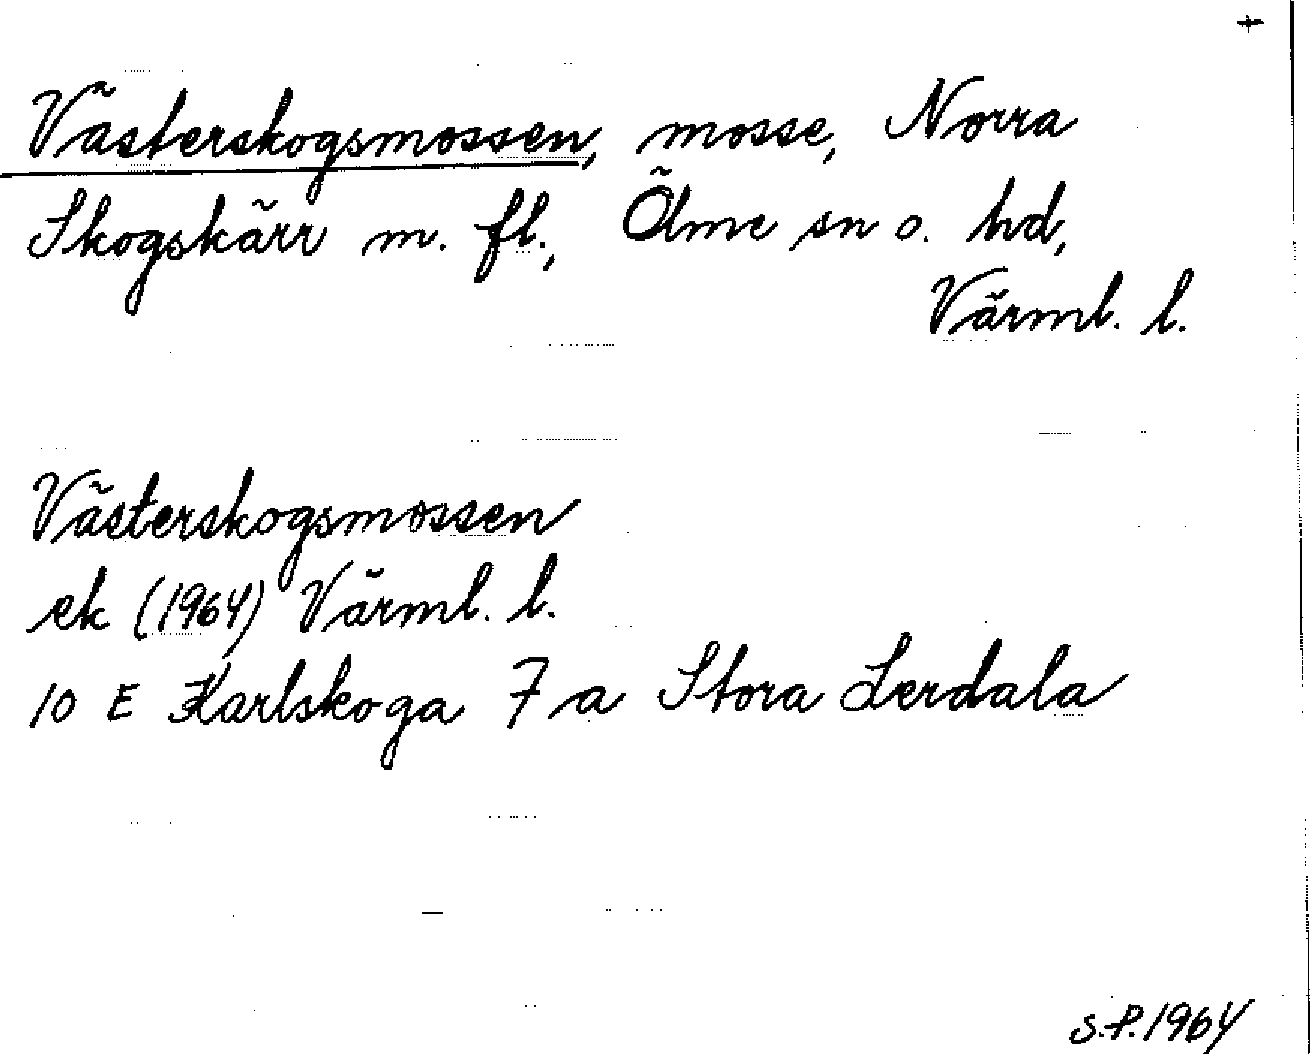 +
Västerskogsmossen, mosse, Norra
Skogskärr m. fl., Ölme sn o. hd,
Värml. l.
Västerskogsmossen
ek (1964) Värml. l.
10 E Karlskoga 7 a Stora Lerdala
S.P. 1964